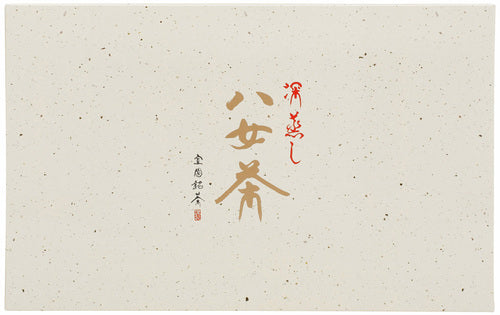 深蒸し
八女茶
全国銘茶